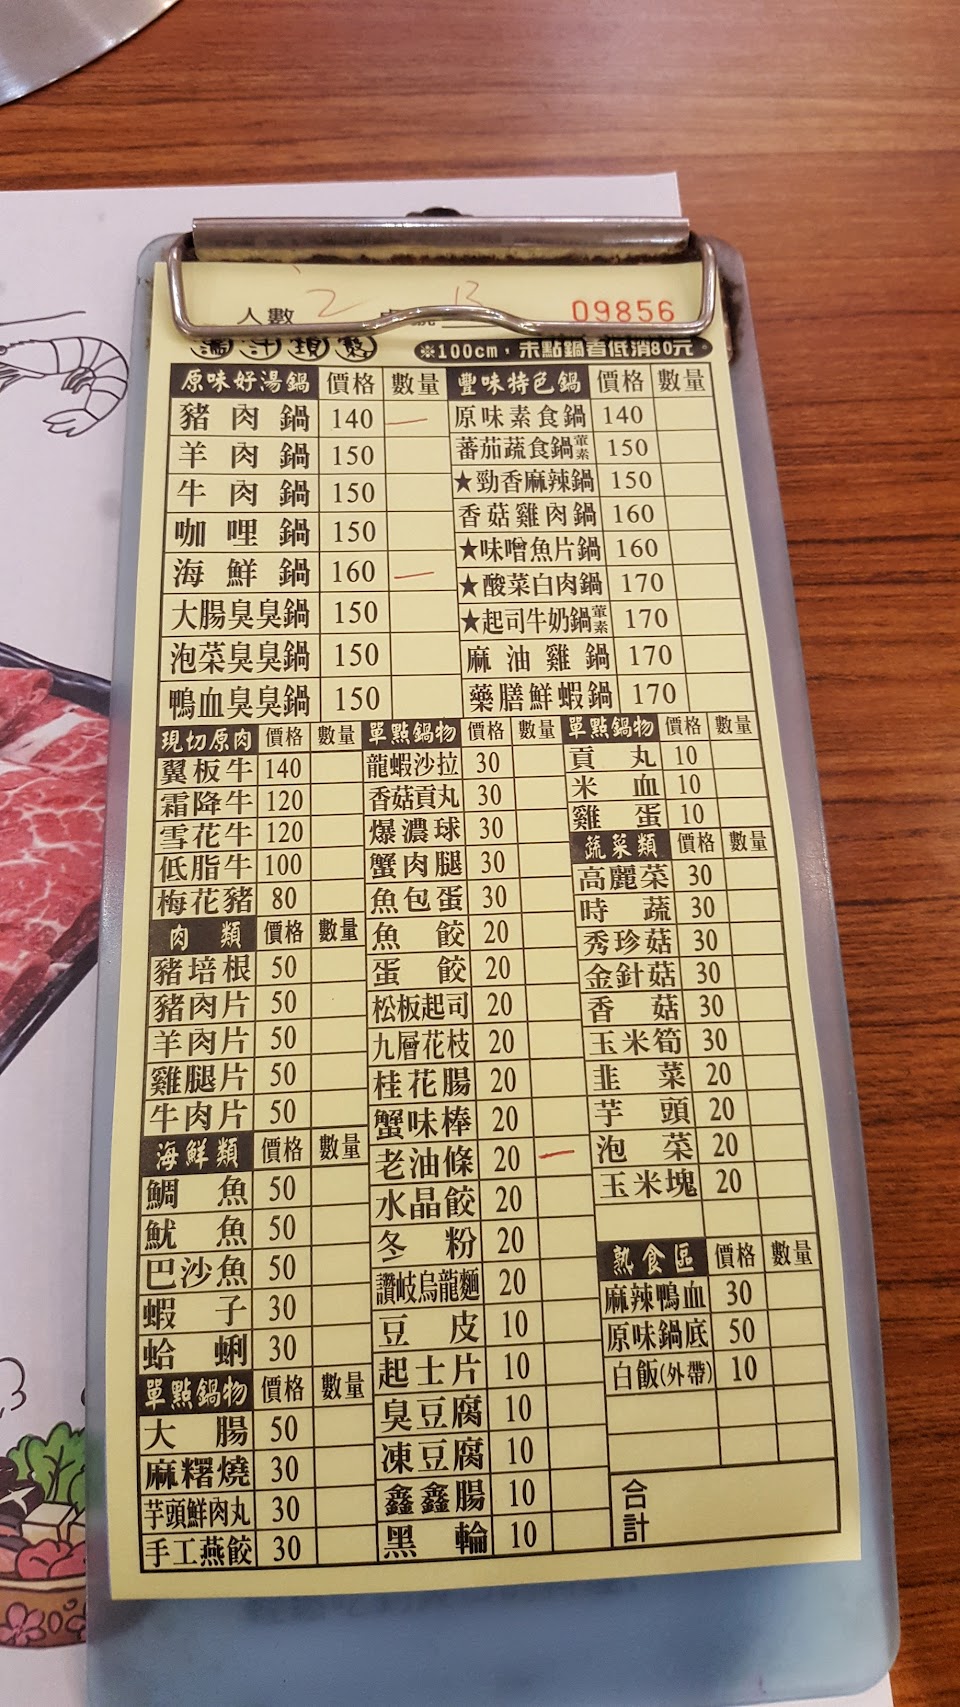 人數 2 13 09856
湯汁現熬 ※100cm，未點鍋者低消80元。
原味好湯鍋 價格 數量 豐味特色鍋 價格 數量
豬肉鍋 140 一 原味素食鍋 140
羊肉鍋 150 蕃茄蔬食鍋葷素 150
牛肉鍋 150 ★勁香麻辣鍋 150
咖哩鍋 150 香菇雞肉鍋 160
海鮮鍋 160 一 ★味噌魚片鍋 160
大腸臭臭鍋 150 ★酸菜白肉鍋 170
泡菜臭臭鍋 150 ★起司牛奶鍋葷素 170
鴨血臭臭鍋 150 麻油雞鍋 170
藥膳鮮蝦鍋 170
現切原肉 價格 數量
翼板牛 140
霜降牛 120
雪花牛 120
低脂牛 100
梅花豬 80
肉類 價格 數量
豬培根 50
豬肉片 50
羊肉片 50
雞腿片 50
牛肉片 50
海鮮類 價格 數量
鯛魚 50
魷魚 50
巴沙魚 50
蝦子 30
蛤蜊 30
單點鍋物 價格 數量
大腸 50
麻糬燒 30
芋頭鮮肉丸 30
手工燕餃 30
單點鍋物 價格 數量
龍蝦沙拉 30
香菇貢丸 30
爆濃球 30
蟹肉腿 30
魚包蛋 30
魚餃 20
蛋餃 20
松板起司 20
九層花枝 20
桂花腸 20
蟹味棒 20
老油條 20 一
水晶餃 20
冬粉 20
讚岐烏龍麵 20
豆皮 10
起士片 10
臭豆腐 10
凍豆腐 10
鑫鑫腸 10
黑輪 10
單點鍋物 價格 數量
貢丸 10
米血 10
雞蛋 10
蔬菜類 價格 數量
高麗菜 30
時蔬 30
秀珍菇 30
金針菇 30
香菇 30
玉米筍 30
韭菜 20
芋頭 20
泡菜 20
玉米塊 20
熟食區 價格 數量
麻辣鴨血 30
原味鍋底 50
白飯(外帶) 10
合計